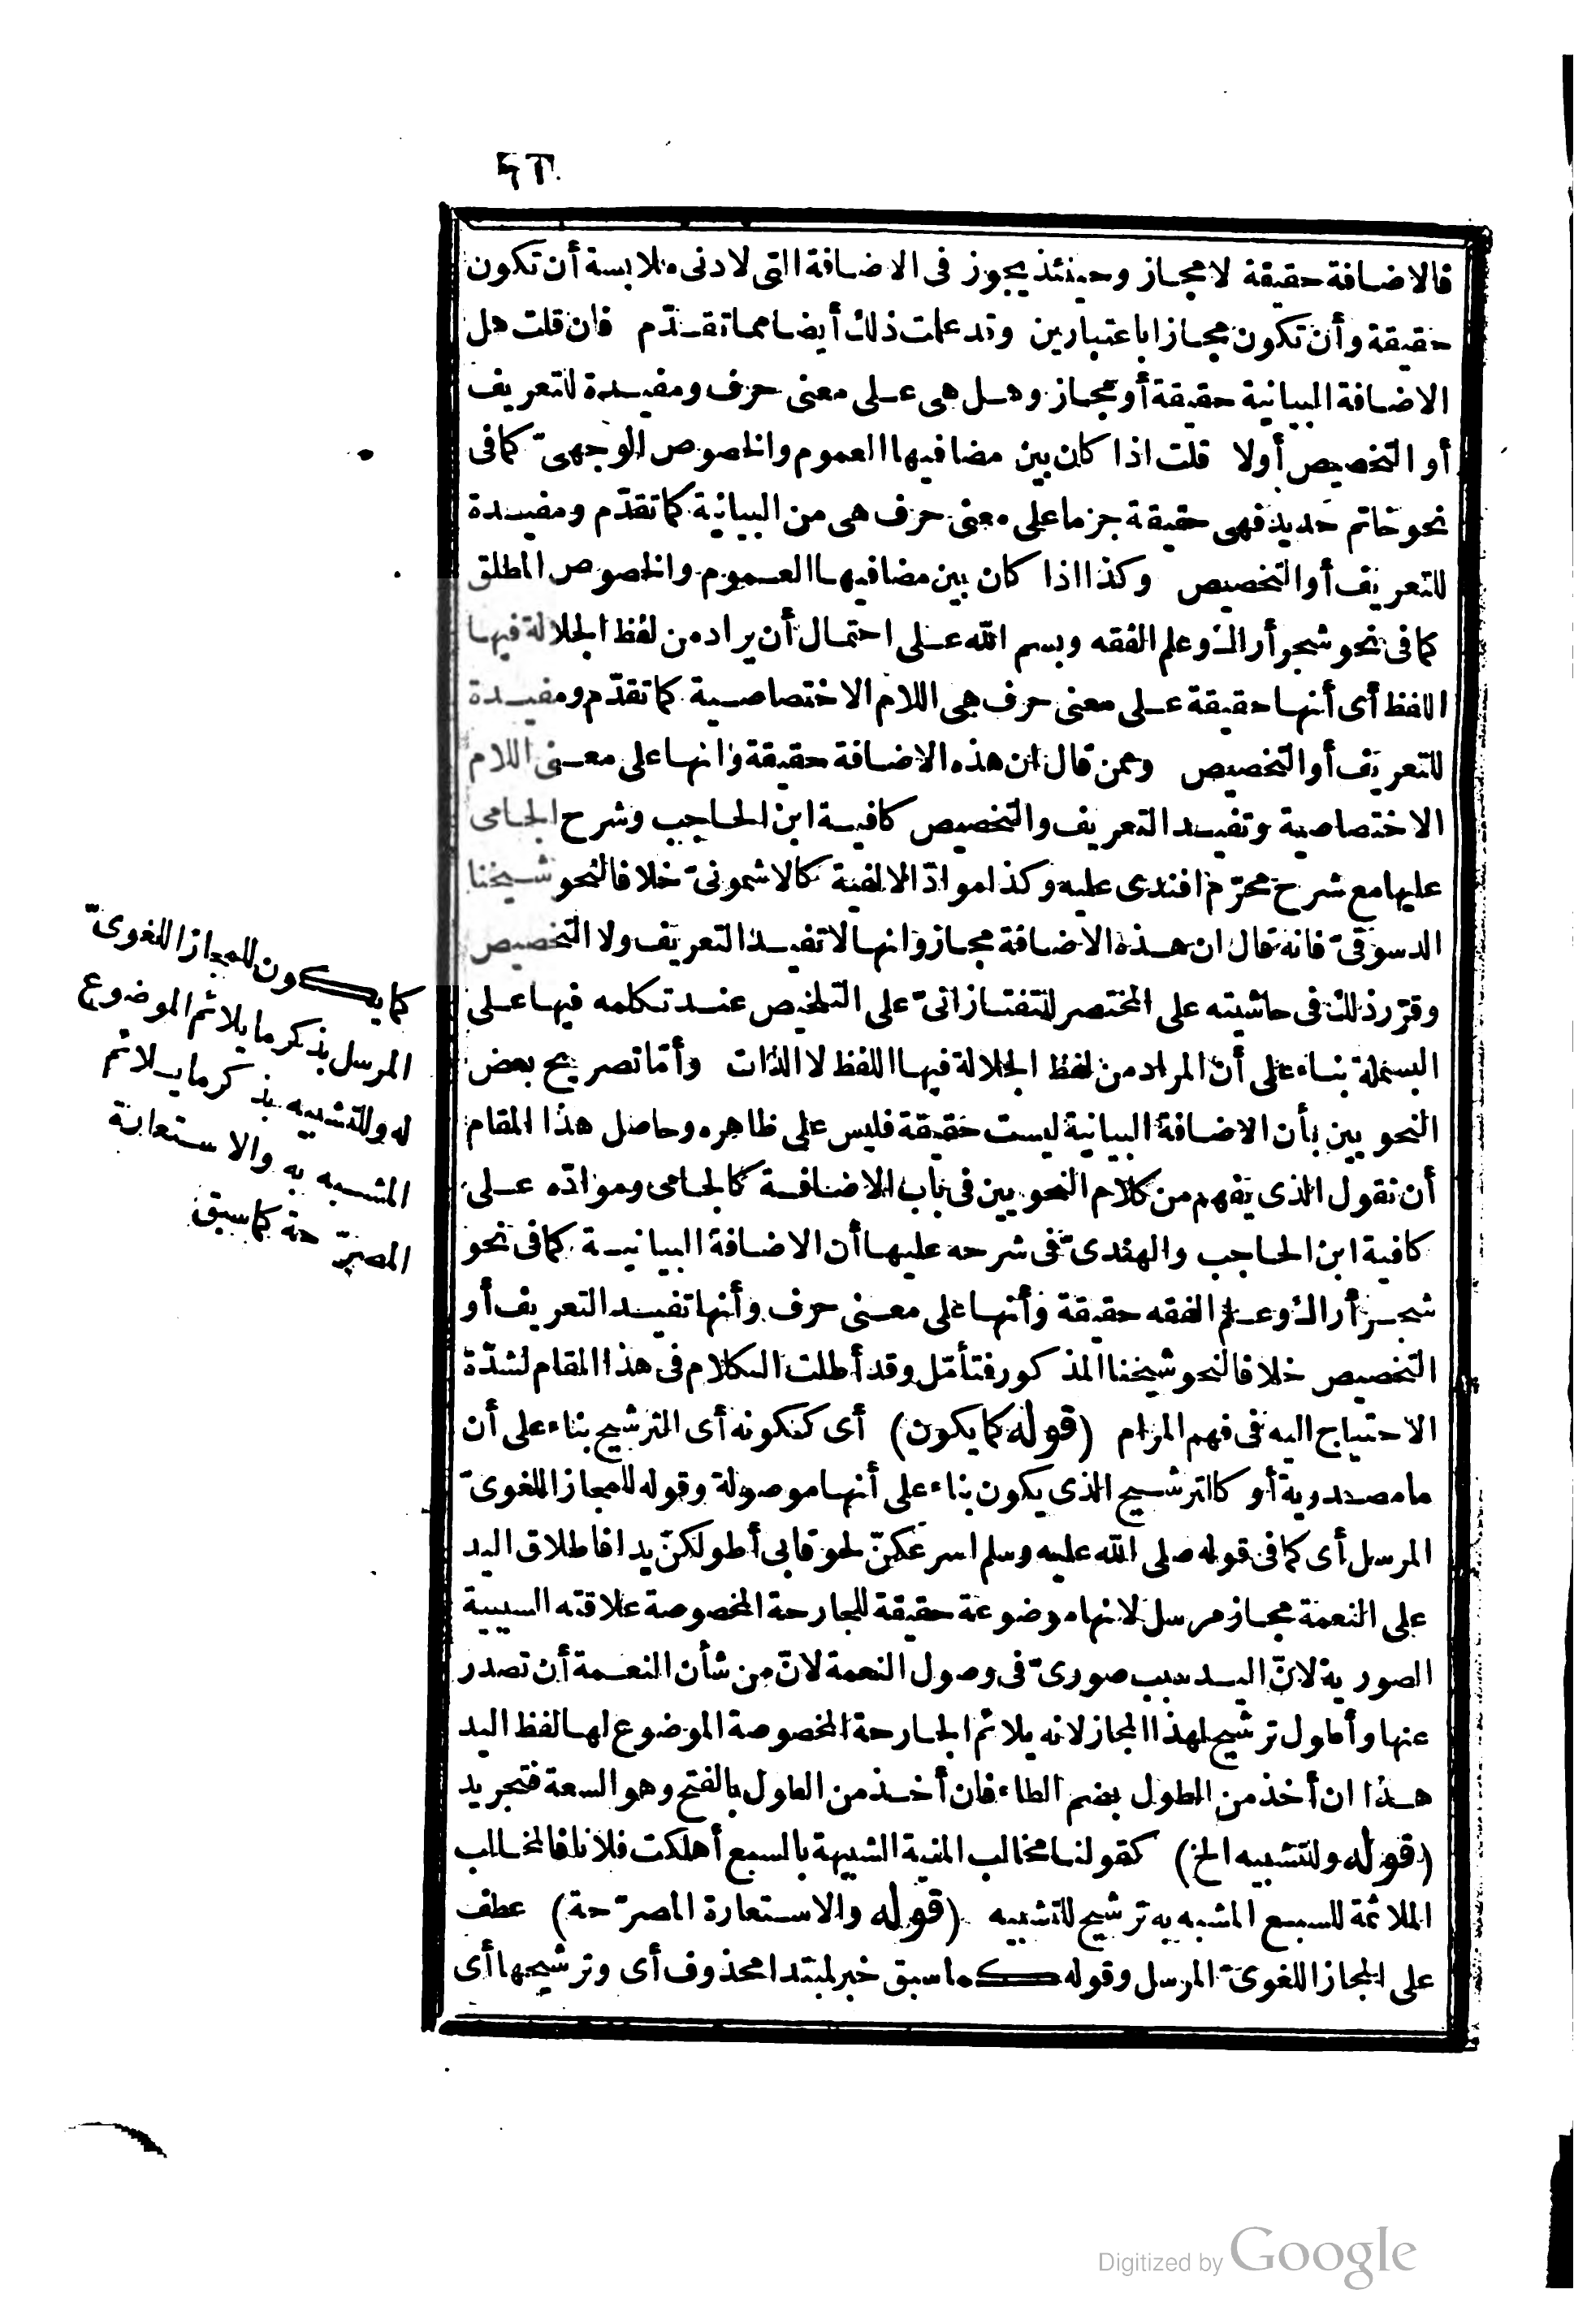 فالاضافة حقيقة لا مجاز وحينئذ يجوز فى الاضافة التى لادنى ملابسة أن تكون
حقيقة وأن تكون مجازا باعتبارين وقد علمت ذلك أيضا مما تقدّم فان قلت هل
الاضافة البيانية حقيقة أو مجاز وهل هى على معنى حرف ومفيدة للتعريف
أو التخصيص أولا قلت اذا كان بين مضافيها العموم والخصوص الوجهىّ كما فى
نحو خاتم حديد فهى حقيقة جزما على معنى حرف هى من البيانية كما تقدّم ومفيدة
للتعريف أو التخصيص وكذا اذا كان بين مضافيها العموم والخصوص المطلق
كما فى نحو شجر أراك وعلم الفقه وبسم الله على احتمال أن يراد من لفظ الجلالة فيها
اللفظ أى أنها حقيقة على معنى حرف هى اللام الاختصاصية كما تقدّم ومفيدة
للتعريف أو التخصيص وممن قال ان هذه الاضافة حقيقة وانها على معنى اللام
الاختصاصية وتفيد التعريف والتخصيص كافية ابن الحاجب وشرح الجامى
عليها مع شرح محرّم افندى عليه وكذا موادّ الالفية كالاشمونىّ خلافا لنحو شيخنا
الدسوقىّ فانه قال ان هذه الاضافة مجاز وانها لا تفيد التعريف ولا التخصيص
وقرّر ذلك فى حاشيته على المختصر للتفتازانىّ على التلخيص عند تكلمه فيها على
البسملة بناء على أن المراد من لفظ الجلالة فيها اللفظ لا الذات وأمّا تصريح بعض
النحويين بأن الاضافة البيانية ليست حقيقة فليس على ظاهره وحاصل هذا المقام
أن نقول الذى يفهم من كلام النحويين فى باب الاضافة كالجامى وموادّه على
كافية ابن الحاجب والهندىّ فى شرحه عليها أن الاضافة البيانية كما فى نحو
شجر أراك وعلم الفقه حقيقة وأنها على معنى حرف وأنها تفيد التعريف أو
التخصيص خلافا لنحو شيخنا المذكور فتأمّل وقد أطلت الكلام فى هذا المقام لشدّة
الاحتياج اليه فى فهم المرام (قوله كما يكون) أى ككونه أى الترشيح بناء على أن
ما مصدرية أو كالترشيح الذى يكون بناء على أنها موصولة وقوله للمجاز اللغوىّ
المرسل أى كما فى قوله صلى الله عليه وسلم اسرعكنّ لحوقا بى أطولكنّ يدا فاطلاق اليد
على النعمة مجاز مرسل لانها موضوعة حقيقة للجارحة المخصوصة علاقته السببية
الصورية لانّ اليد سبب صورىّ فى وصول النعمة لانّ من شأن النعمة أن تصدر
عنها وأطول ترشيح لهذا المجاز لانه يلائم الجارحة المخصوصة الموضوع لها لفظ اليد
هذا ان أخذ من الطول بضم الطاء فان أخذ من الطول بالفتح وهو السعة فتجريد
(قوله وللتشبيه الخ) كقولنا مخالب المنية الشبيهة بالسبع أهلكت فلانا فالمخالب
الملائمة للسبع المشبه به ترشيح للتشبيه (قوله والاستعارة المصرّحة) عطف
على المجاز اللغوىّ المرسل وقوله كما سبق خبر لمبتدا محذوف أى وترشيحها أى
كما يكون للمجاز اللغوىّ
المرسل بذكر ما يلائم الموضوع
له وللتشبيه بذكر ما يلائم
المشبه به والاستعارة
المصرّحة كما سبق
Digitized by Google